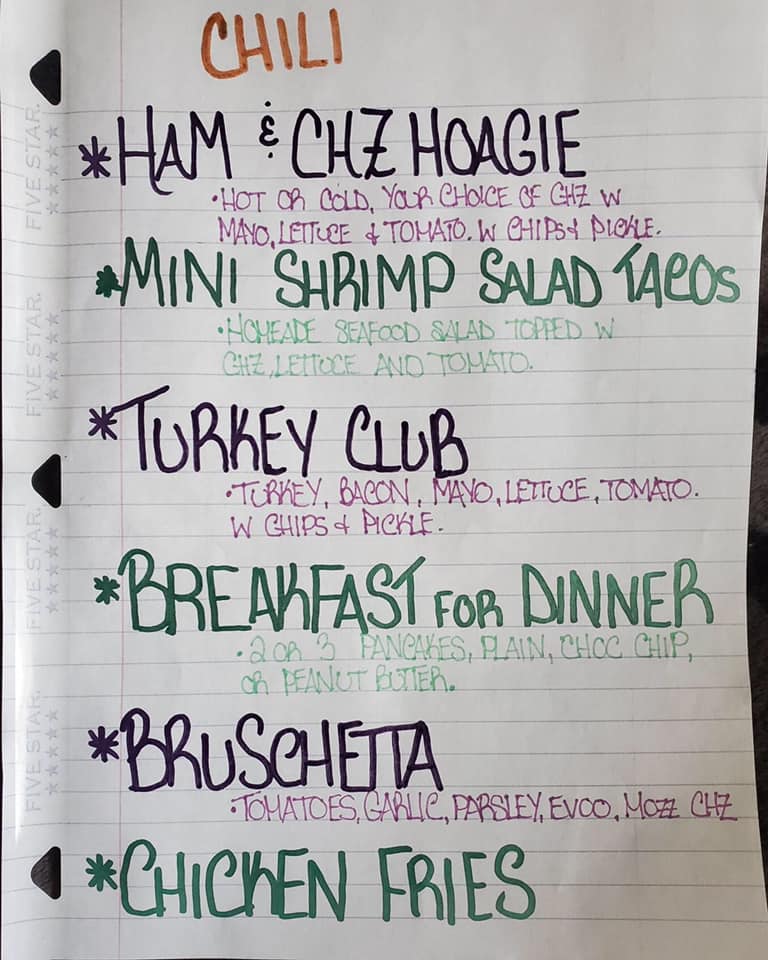 CHILI
*HAM & CHZ HOAGIE
•HOT OR COLD, YOUR CHOICE OF CHZ W
MAYO, LETTUCE & TOMATO. W CHIPS & PICKLE.
*MINI SHRIMP SALAD TACOS
•HOMEADE SEAFOOD SALAD TOPPED W
CHZ, LETTUCE AND TOMATO.
*TURKEY CLUB
•TURKEY, BACON, MAYO, LETTUCE, TOMATO.
W CHIPS & PICKLE.
*BREAKFAST FOR DINNER
•2 OR 3 PANCAKES, PLAIN, CHOC CHIP,
OR PEANUT BUTTER.
*BRUSCHETTA
•TOMATOES, GARLIC, PARSLEY, EVOO, MOZZ CHZ
*CHICKEN FRIES
FIVE STAR.
FIVE STAR.
FIVE STAR.
FIVE STAR.